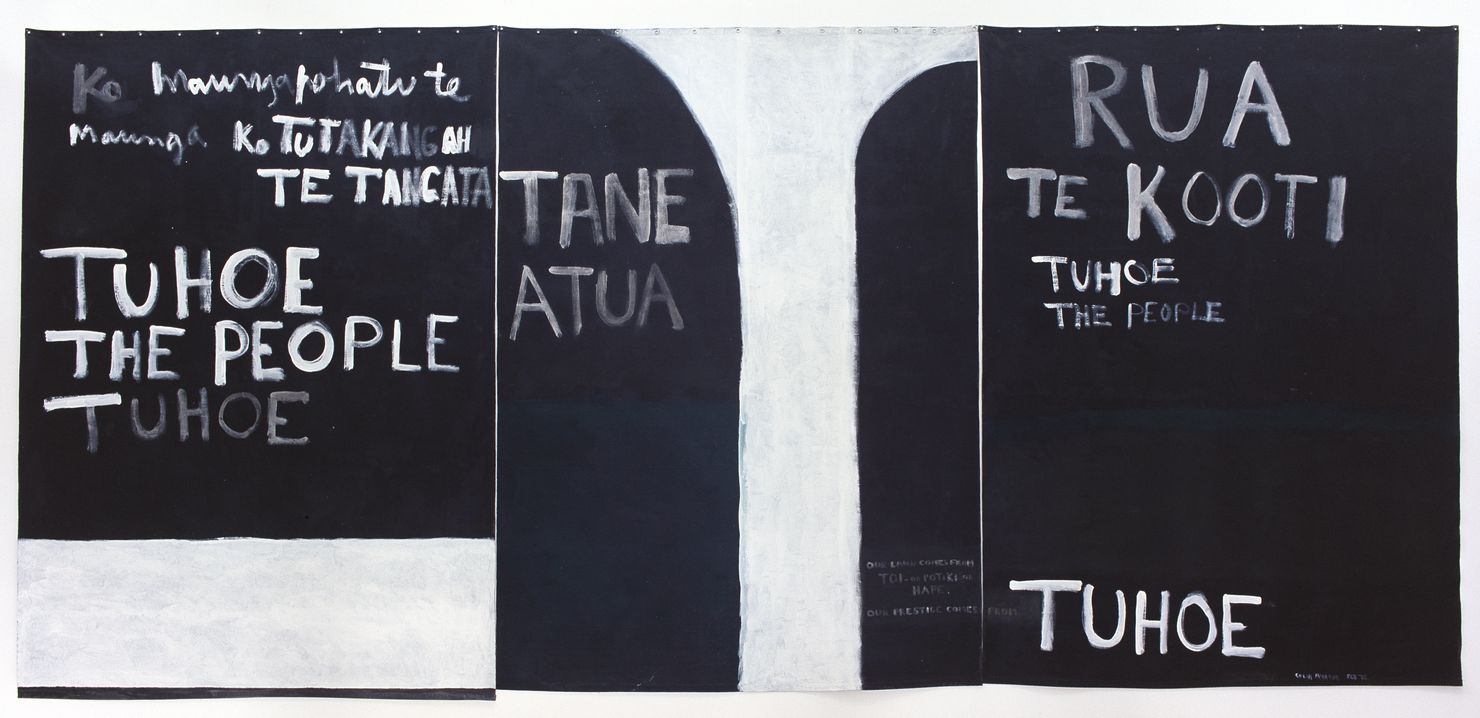 Ko Maungapohatu te
Maunga Ko TUTAKANGAH
TE TANGATA
TUHOE
THE PEOPLE
TUHOE
TANE
ATUA
OUR LAND COMES FROM
TOI-OR POTIKI OR
HAPE.
OUR PRESTIGE COMES FROM
RUA
TE KOOTI
TUHOE
THE PEOPLE
TUHOE